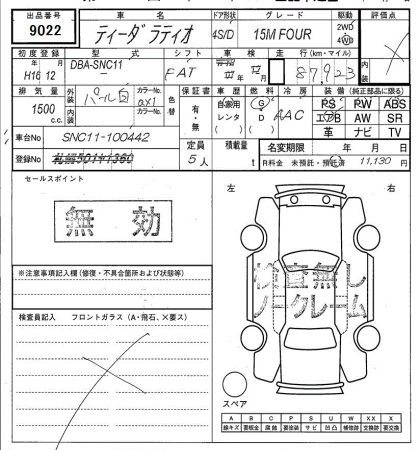 出品番号 車名 ドア形状 グレード 駆動 評価点
9022 ティーダ ラティオ 4S/D 15M FOUR 2WD 4WD
初度登録 型式 シフト 車検 走行(km・マイル) 内装
年 月 H16 12 DBA-SNC11 FAT 年 月 87,923
排気量 外装 カラーNo. 色替 保証書 車歴 燃料 冷房 装備(純正部品に限る)
1500 c.c. 内装 パール白 ax1 カラーNo. 有・無 自家用 レンタ ( ) G D ( ) AAC PS PW ABS
エアB AW SR
革 ナビ TV
車台No SNC11-100442 定員 積載量 名変期限 年 月 日
登録No 5人 t R料金 未預託・預託済 11,130 円
セールスポイント
無効
左 右
※注意事項記入欄(修復・不具合箇所および状態等)
検査無し
ノークレーム
検査員記入欄 フロントガラス(A・飛石、×要ス)
スペア
A B C P S U W X XX
線キズ 要板金 腐蝕 要塗装 サビ 凹凸 補修跡 交換跡 要交換